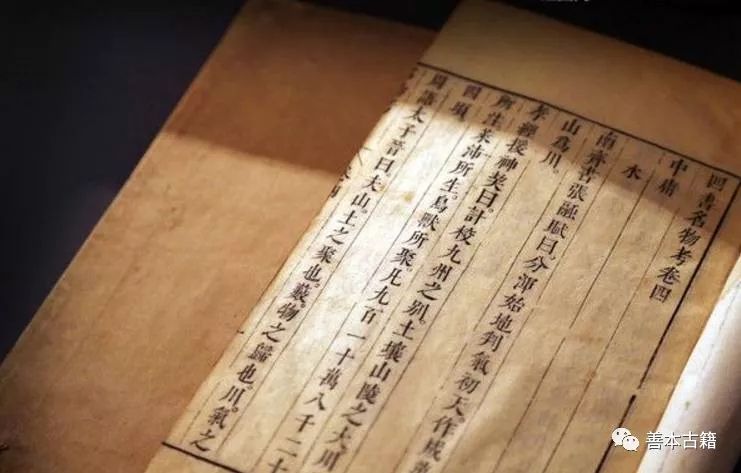 四書名物考卷四
中庸
水
南齊書張融賦曰分渾始地判氣初天作成
山為川。
孝經援神契曰。計校九州之別。土壤山陵之大川
所注萊沛所生。鳥獸所聚。凡九百一十萬八千二十
四頃。
周語太子晉曰夫山。土之聚也。藪。物之歸也。川。氣之
善本古籍